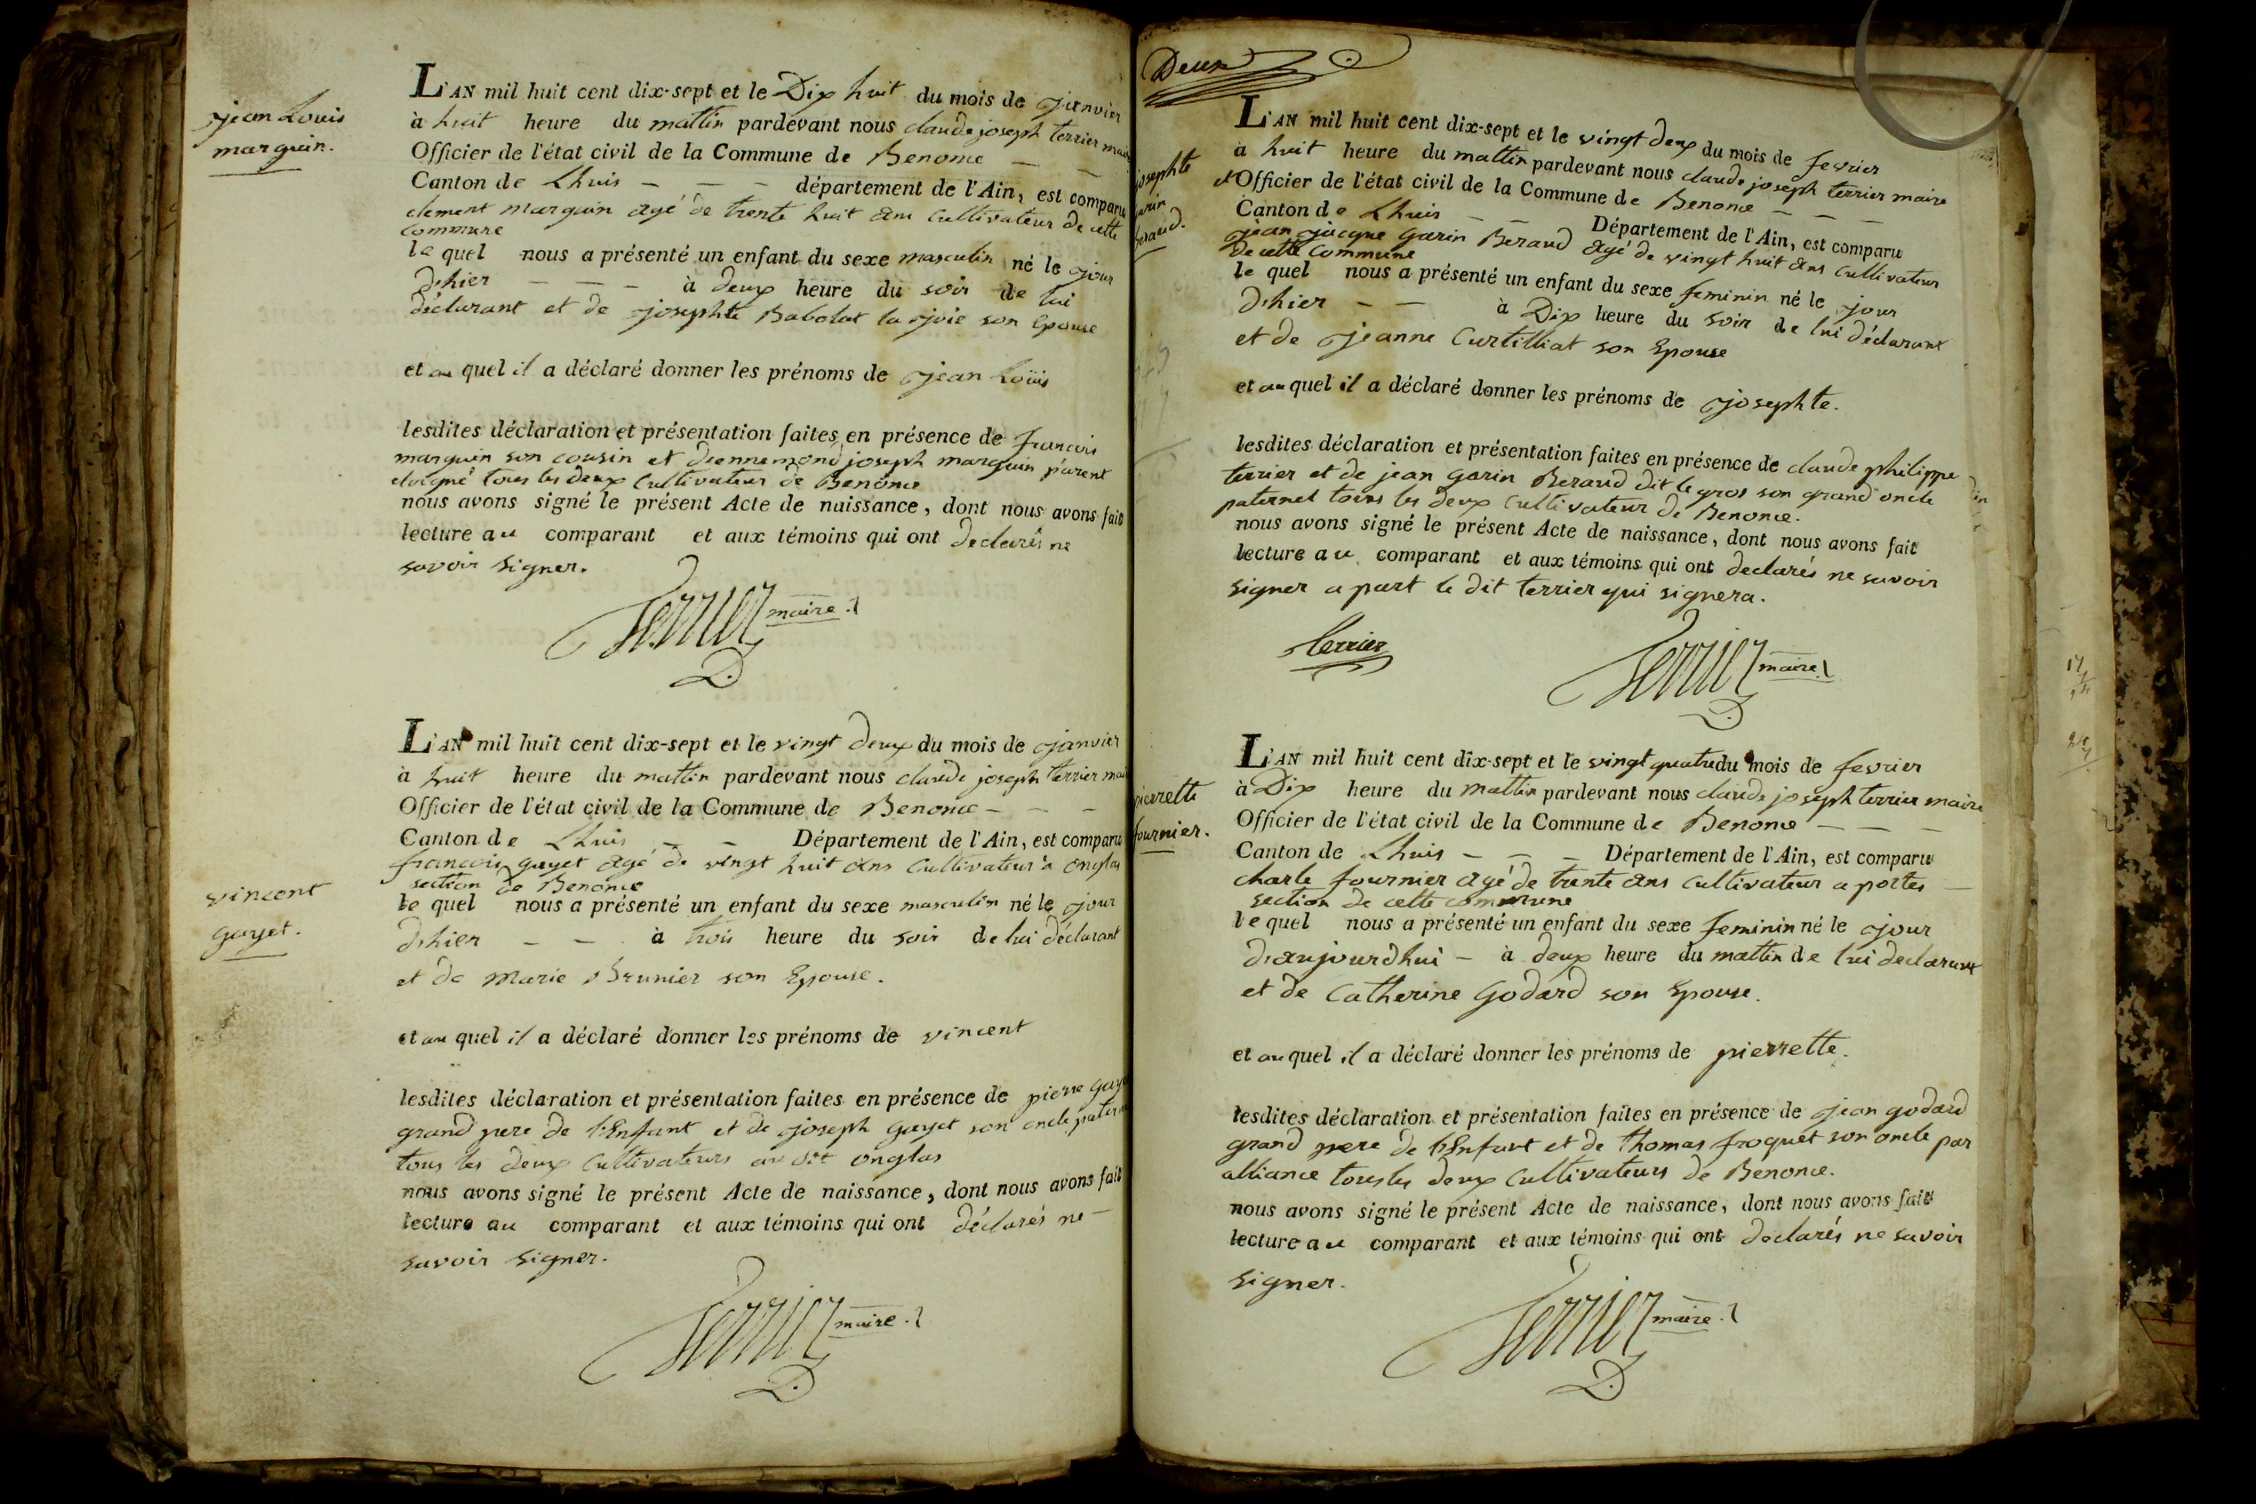 jean Louis
marquin.
L'AN mil huit cent dix-sept et le Dix huit du mois de janvier
à huit heure du mattin pardevant nous claude joseph terrier mai
Officier de l'état civil de la Commune de Benonce — —
Canton de Lhuis — — — département de l'Ain, est comparu
clement marquin agé de trente huit ans cultivateur de cette
commune
le quel nous a présenté un enfant du sexe masculin né le jour
d'hier — — — à deux heure du soir de lui
déclarant et de josephte Babolat la joie son Epouse
et au quel il a déclaré donner les prénoms de jean Loüis
lesdites déclaration et présentation faites en présence de francois
marquin son cousin et diennemond joseph marquin parent
eloigné tous les deux cultivateurs de Benonce
nous avons signé le présent Acte de naissance, dont nous avons fait
lecture au comparant et aux témoins qui ont declarés ne
savoir signer.
Terrier maire
vincent
gayet.
L'AN mil huit cent dix-sept et le vingt deux du mois de janvier
à huit heure du mattin pardevant nous claude joseph terrier mai
Officier de l'état civil de la Commune de Benonce — — —
Canton de Lhuis — — Département de l'Ain, est comparu
francois gayet agé de vingt huit ans cultivateur à onglas
section de Benonce
le quel nous a présenté un enfant du sexe masculin né le jour
d'hier — — à trois heure du soir de lui déclarant
et de marie Brunier son Epouse.
et au quel il a déclaré donner les prénoms de vincent
lesdites déclaration et présentation faites en présence de pierre gaye
grand pere de l'Enfant et de joseph gayet son oncle patern
tous les deux cultivateurs au dit onglas
nous avons signé le présent Acte de naissance, dont nous avons fait
lecture au comparant et aux témoins qui ont déclarés ne —
savoir signer.
Terrier maire
Deux
josephte
garin
Beraud.
L'AN mil huit cent dix-sept et le vingt deux du mois de fevrier
à huit heure du mattin pardevant nous claude joseph terrier maire
et Officier de l'état civil de la Commune de Benonce — — —
Canton de Lhuis — — Département de l'Ain, est comparu
jean jacque garin Beraud agé de vingt huit ans cultivateur
de cette commune
le quel nous a présenté un enfant du sexe feminin né le jour
d'hier — — à Dix heure du soir de lui déclarant
et de jeanne Curtilliat son Epouse
et au quel il a déclaré donner les prénoms de josephte.
lesdites déclaration et présentation faites en présence de claude philippe
terrier et de jean garin Beraud dit le gros son grand oncle
paternel tous les deux cultivateur de Benonce.
nous avons signé le présent Acte de naissance, dont nous avons fait
lecture au comparant et aux témoins qui ont declarés ne savoir
signer a part le dit terrier qui signera.
terrier
Terrier maire
pierrette
fournier.
L'AN mil huit cent dix-sept et le vingt quatre du mois de fevrier
à Dix heure du mattin pardevant nous claude joseph terrier maire
Officier de l'état civil de la Commune de Benonce — — —
Canton de Lhuis — — — Département de l'Ain, est comparu
charle fournier agé de trente ans cultivateur a portes —
section de cette commune
le quel nous a présenté un enfant du sexe feminin né le jour
d'aujourdhui — à deux heure du mattin de lui declarant
et de Catherine Godard son Epouse.
et au quel il a déclaré donner les prénoms de pierrette.
lesdites déclaration et présentation faites en présence de jean godard
grand pere de l'Enfant et de thomas froquet son oncle par
alliance tous les deux cultivateurs de Benonce.
nous avons signé le présent Acte de naissance, dont nous avons fait
lecture au comparant et aux témoins qui ont declarés ne savoir
signer.
Terrier maire